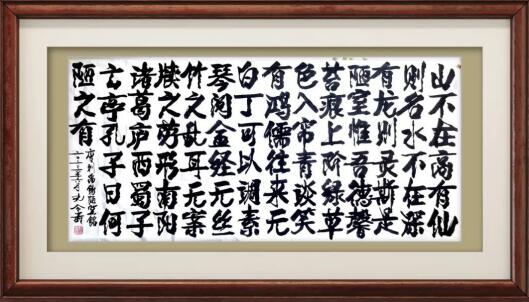 山不在高有仙
则名水不在深
有龙则灵斯是
陋室惟吾德馨
苔痕上阶绿草
色入帘青谈笑
有鸿儒往来无
白丁可以调素
琴阅金经无丝
竹之乱耳无案
牍之劳形南阳
诸葛庐西蜀子
云亭孔子曰何
陋之有
唐刘禹锡陋室铭